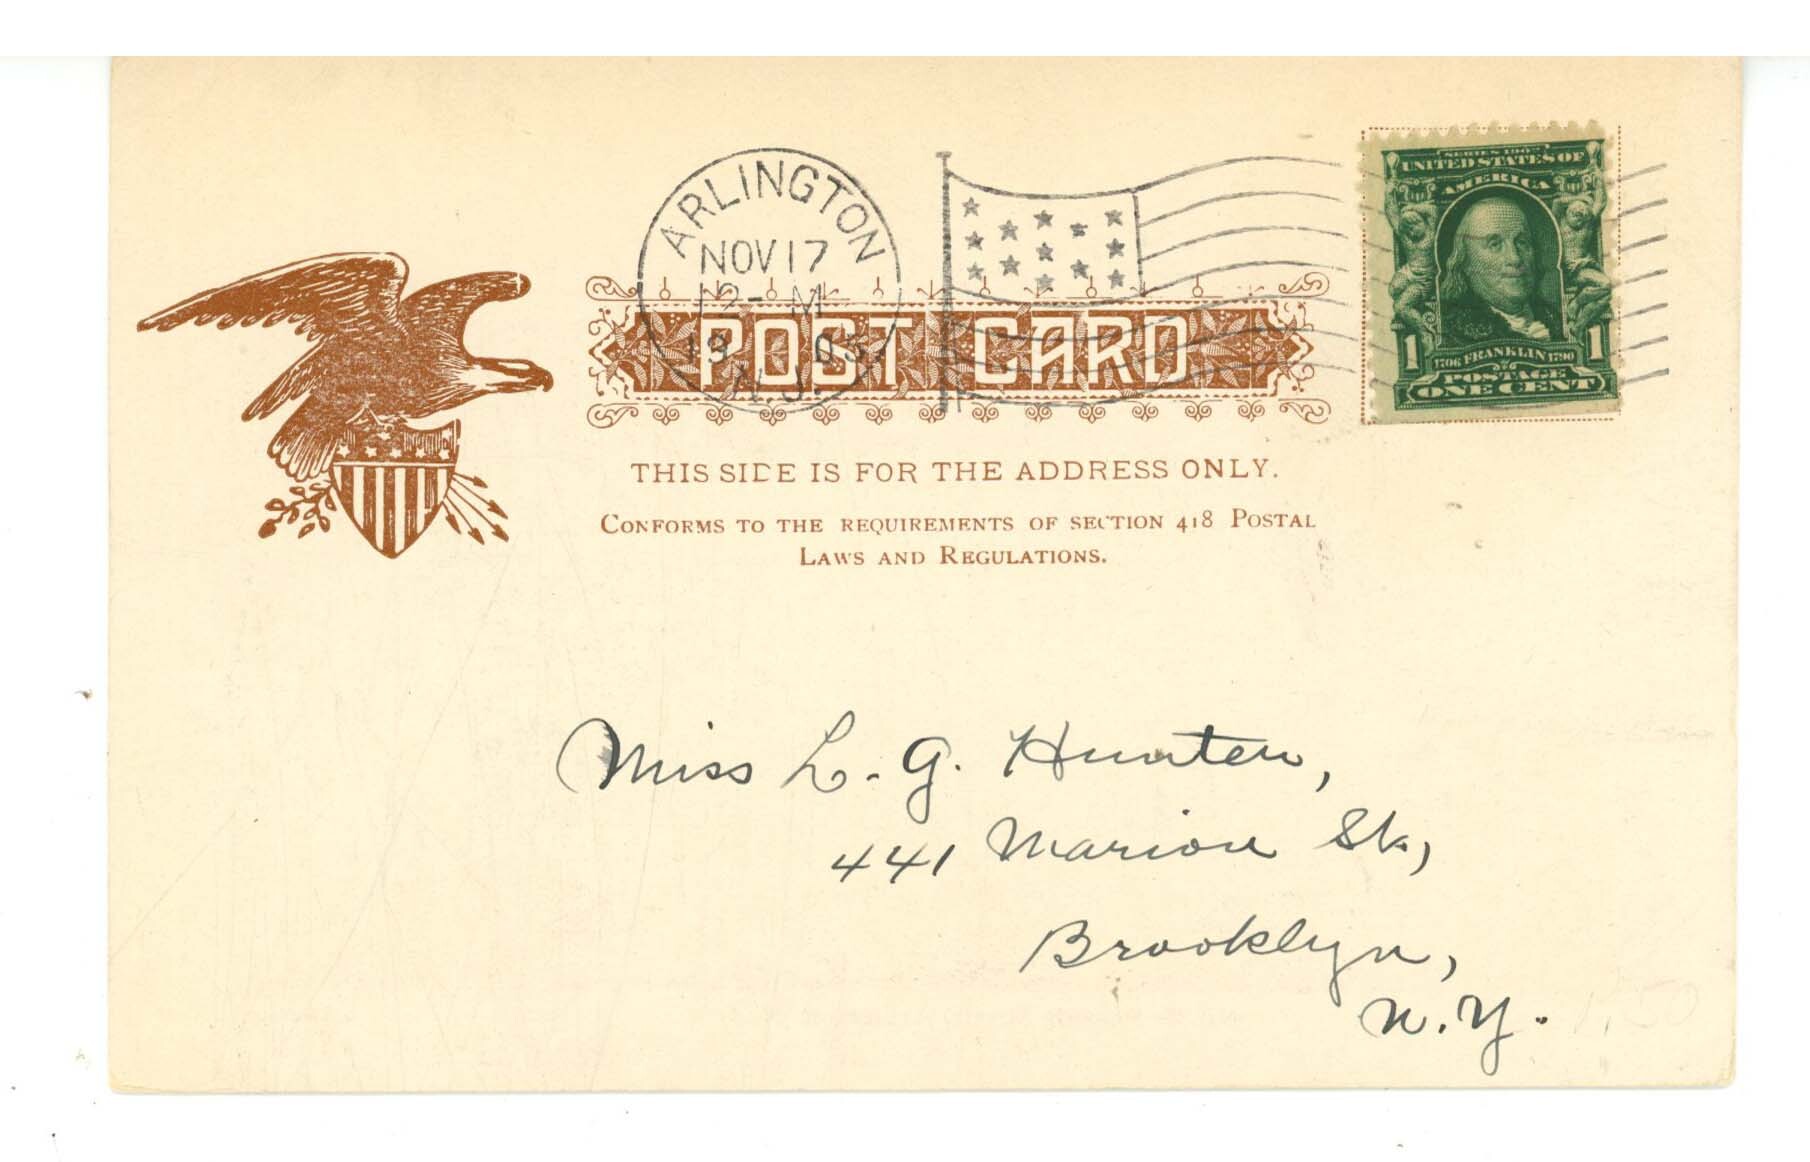 ARLINGTON
NOV 17
2- M
19 05
N.J.
SERIES 1902
UNITED STATES OF
AMERICA
1706 FRANKLIN 1790
1 1
POSTAGE
ONE CENT
POST CARD
THIS SIDE IS FOR THE ADDRESS ONLY.
CONFORMS TO THE REQUIREMENTS OF SECTION 418 POSTAL
LAWS AND REGULATIONS.
Miss L. G. Hunter,
441 Marion St.,
Brooklyn,
N.Y.